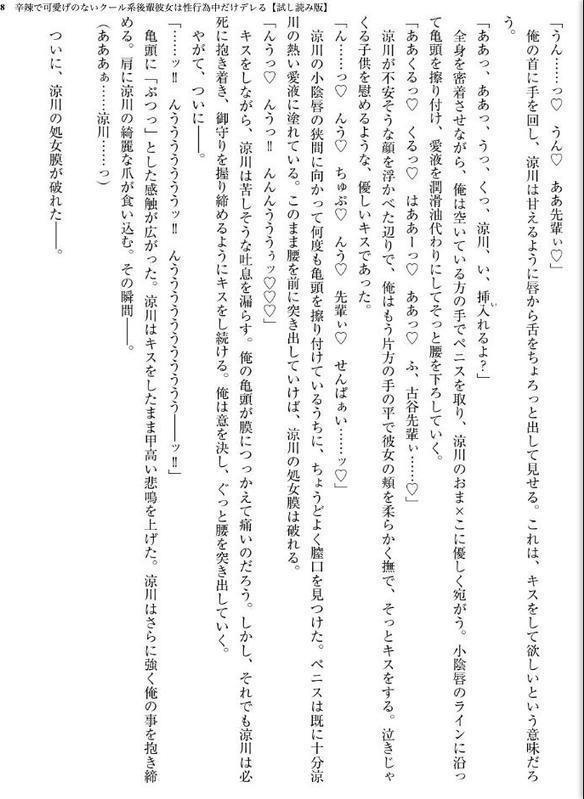 8 辛辣で可愛げのないクール系後輩彼女は性行為中だけデレる【試し読み版】
「うん……っ♡　うん♡　ああ先輩ぃ♡」
　俺の首に手を回し、涼川は甘えるように唇から舌をちょろっと出して見せる。これは、キスをして欲しいという意味だろ
う。
「ああっ、ああっ、うっ、くっ、涼川、い、挿入れるよ？」
　全身を密着させながら、俺は空いている方の手でペニスを取り、涼川のおま×こに優しく宛がう。小陰唇のラインに沿っ
て亀頭を擦り付け、愛液を潤滑油代わりにしてそっと腰を下ろしていく。
「ああくるっ♡　くるっ♡　はああーっ♡　ああっ♡　ふ、古谷先輩ぃ……♡」
　涼川が不安そうな顔を浮かべた辺りで、俺はもう片方の手の平で彼女の頬を柔らかく撫で、そっとキスをする。泣きじゃ
くる子供を慰めるような、優しいキスであった。
「ん……っ♡　んう♡　ちゅぷ♡　んう♡　先輩ぃ♡　せんぱぁい……ッ♡」
　涼川の小陰唇の狭間に向かって何度も亀頭を擦り付けているうちに、ちょうどよく膣口を見つけた。ペニスは既に十分涼
川の熱い愛液に塗れている。このまま腰を前に突き出していけば、涼川の処女膜は破れる。
「んうっ♡　んうっ‼　んんんうううぅッ♡♡♡」
　キスをしながら、涼川は苦しそうな吐息を漏らす。俺の亀頭が膜につっかえて痛いのだろう。しかし、それでも涼川は必
死に抱き着き、御守りを握り締めるようにキスをし続ける。俺は意を決し、ぐっと腰を突き出していく。
　やがて、ついに――。
「……ッ‼　んううううううううッ‼　んうううううううううううう――ッ‼」
　亀頭に「ぷつっ」とした感触が広がった。涼川はキスをしたまま甲高い悲鳴を上げた。涼川はさらに強く俺の事を抱き締
める。肩に涼川の綺麗な爪が食い込む。その瞬間――。
（あああぁ……涼川……っ）
　ついに、涼川の処女膜が破れた――。